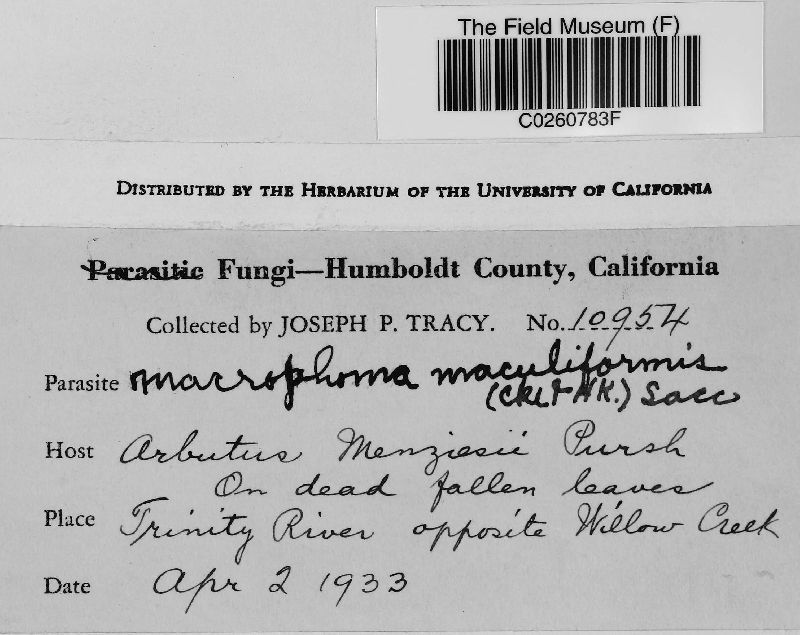 The Field Museum (F)
C0260783F
DISTRIBUTED BY THE HERBARIUM OF THE UNIVERSITY OF CALIFORNIA
Parasitic Fungi—Humboldt County, California
Collected by JOSEPH P. TRACY. No. 10954
Parasite macrophoma maculiformis
Sacc
Host Arbutus Menziesii Pursh
On dead fallen leaves
Place Trinity River opposite Willow Creek
Date Apr 2 1933